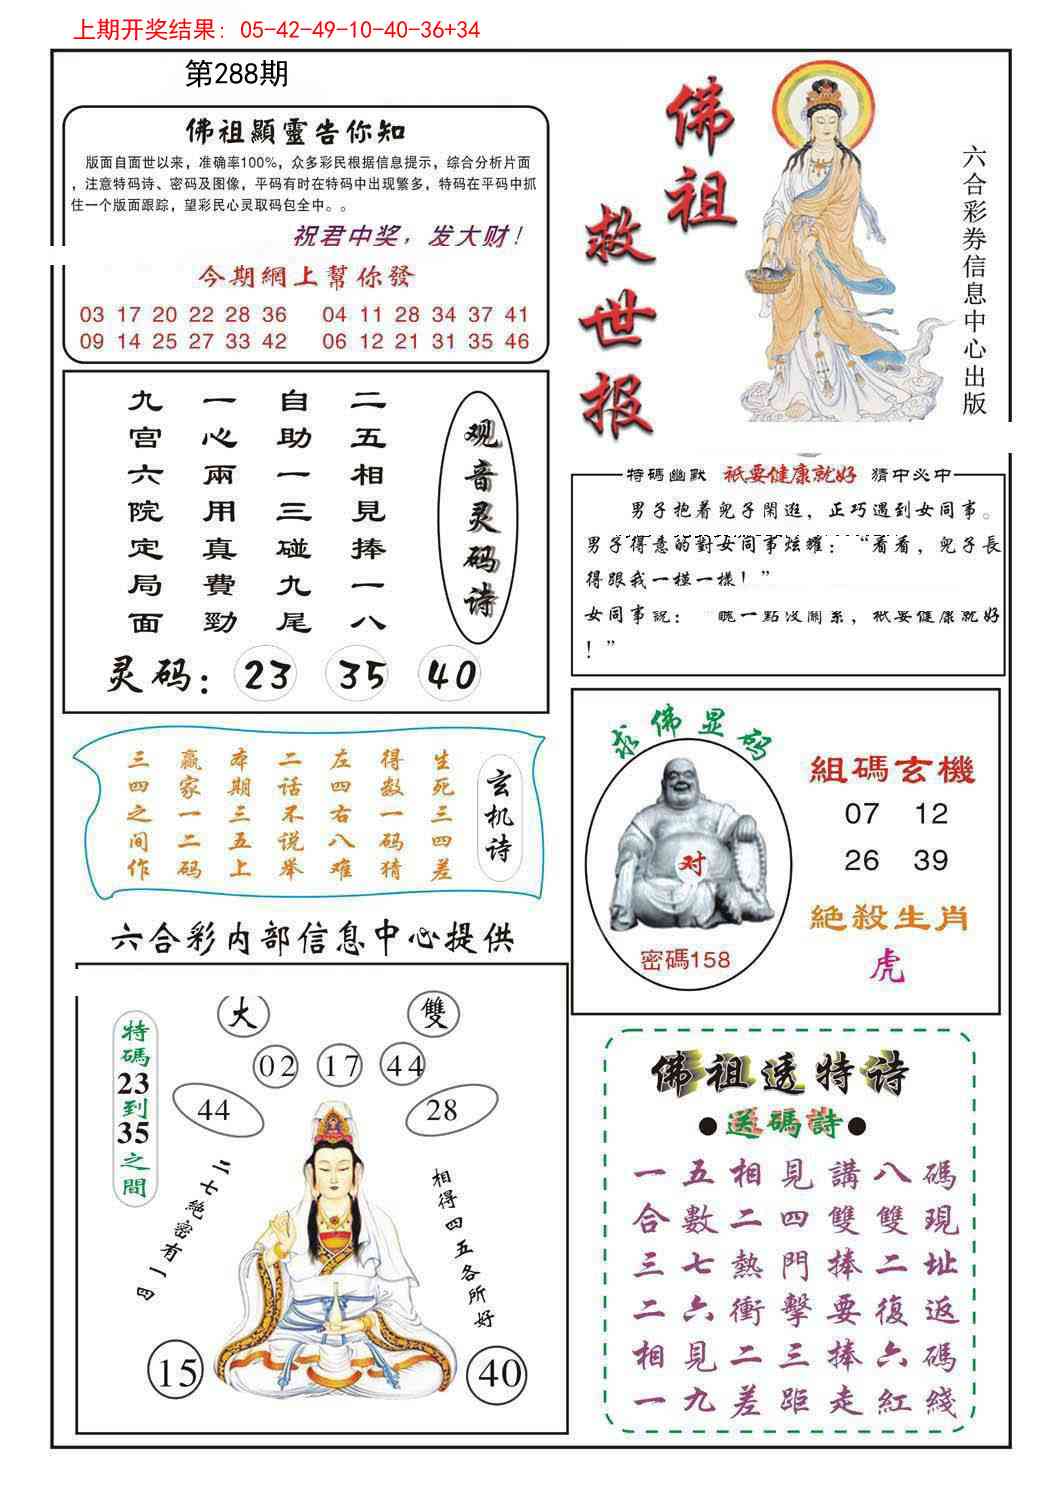 上期开奖结果：05-42-49-10-40-36+34
第288期
佛祖顯靈告你知
版面自面世以来，准确率100%，众多彩民根据信息提示，综合分析片面
，注意特码诗、密码及图像，平码有时在特码中出现繁多，特码在平码中抓
住一个版面跟踪，望彩民心灵取码包全中。。
祝君中奖，发大财！
今期網上幫你發
03 17 20 22 28 36 04 11 28 34 37 41
09 14 25 27 33 42 06 12 21 31 35 46
佛祖
救世报
六合彩券信息中心出版
观音灵码诗
二五相見捧一八
自助一三碰九尾
一心兩用真費勁
九宫六院定局面
灵码：23 35 40
特碼幽默 祇要健康就好 猜中必中
男子抱着兒子閑逛，正巧遇到女同事。
男子得意的對女同事炫耀：“看看，兒子長
得跟我一模一樣！”
女同事説：醜一點没關系，祇要健康就好
！”
玄机诗
生死三四差
得数一码猜
左四右八难
二话不说举
本期三五上
赢家一二码
三四之间作
求佛显码
对
密碼158
組碼玄機
07 12
26 39
絕殺生肖
虎
六合彩内部信息中心提供
特碼23到35之間
大 雙
02 17 44
44 28
二七絶密有一四
相得四五各所好
15 40
佛祖透特诗
●送碼詩●
一五相見講八碼
合數二四雙雙現
三七熱門捧二址
二六衝擊要復返
相見二三捧六碼
一九差距走紅綫